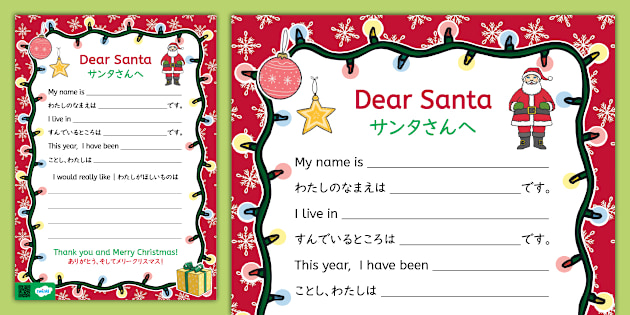 Dear Santa
サンタさんへ
My name is
わたしのなまえは です。
I live in
すんでいるところは です。
This year, I have been
ことし、わたしは
I would really like | わたしがほしいものは
Thank you and Merry Christmas!
ありがとう、そしてメリークリスマス!
Dear Santa
サンタさんへ
My name is
わたしのなまえは です。
I live in
すんでいるところは です。
This year, I have been
ことし、わたしは